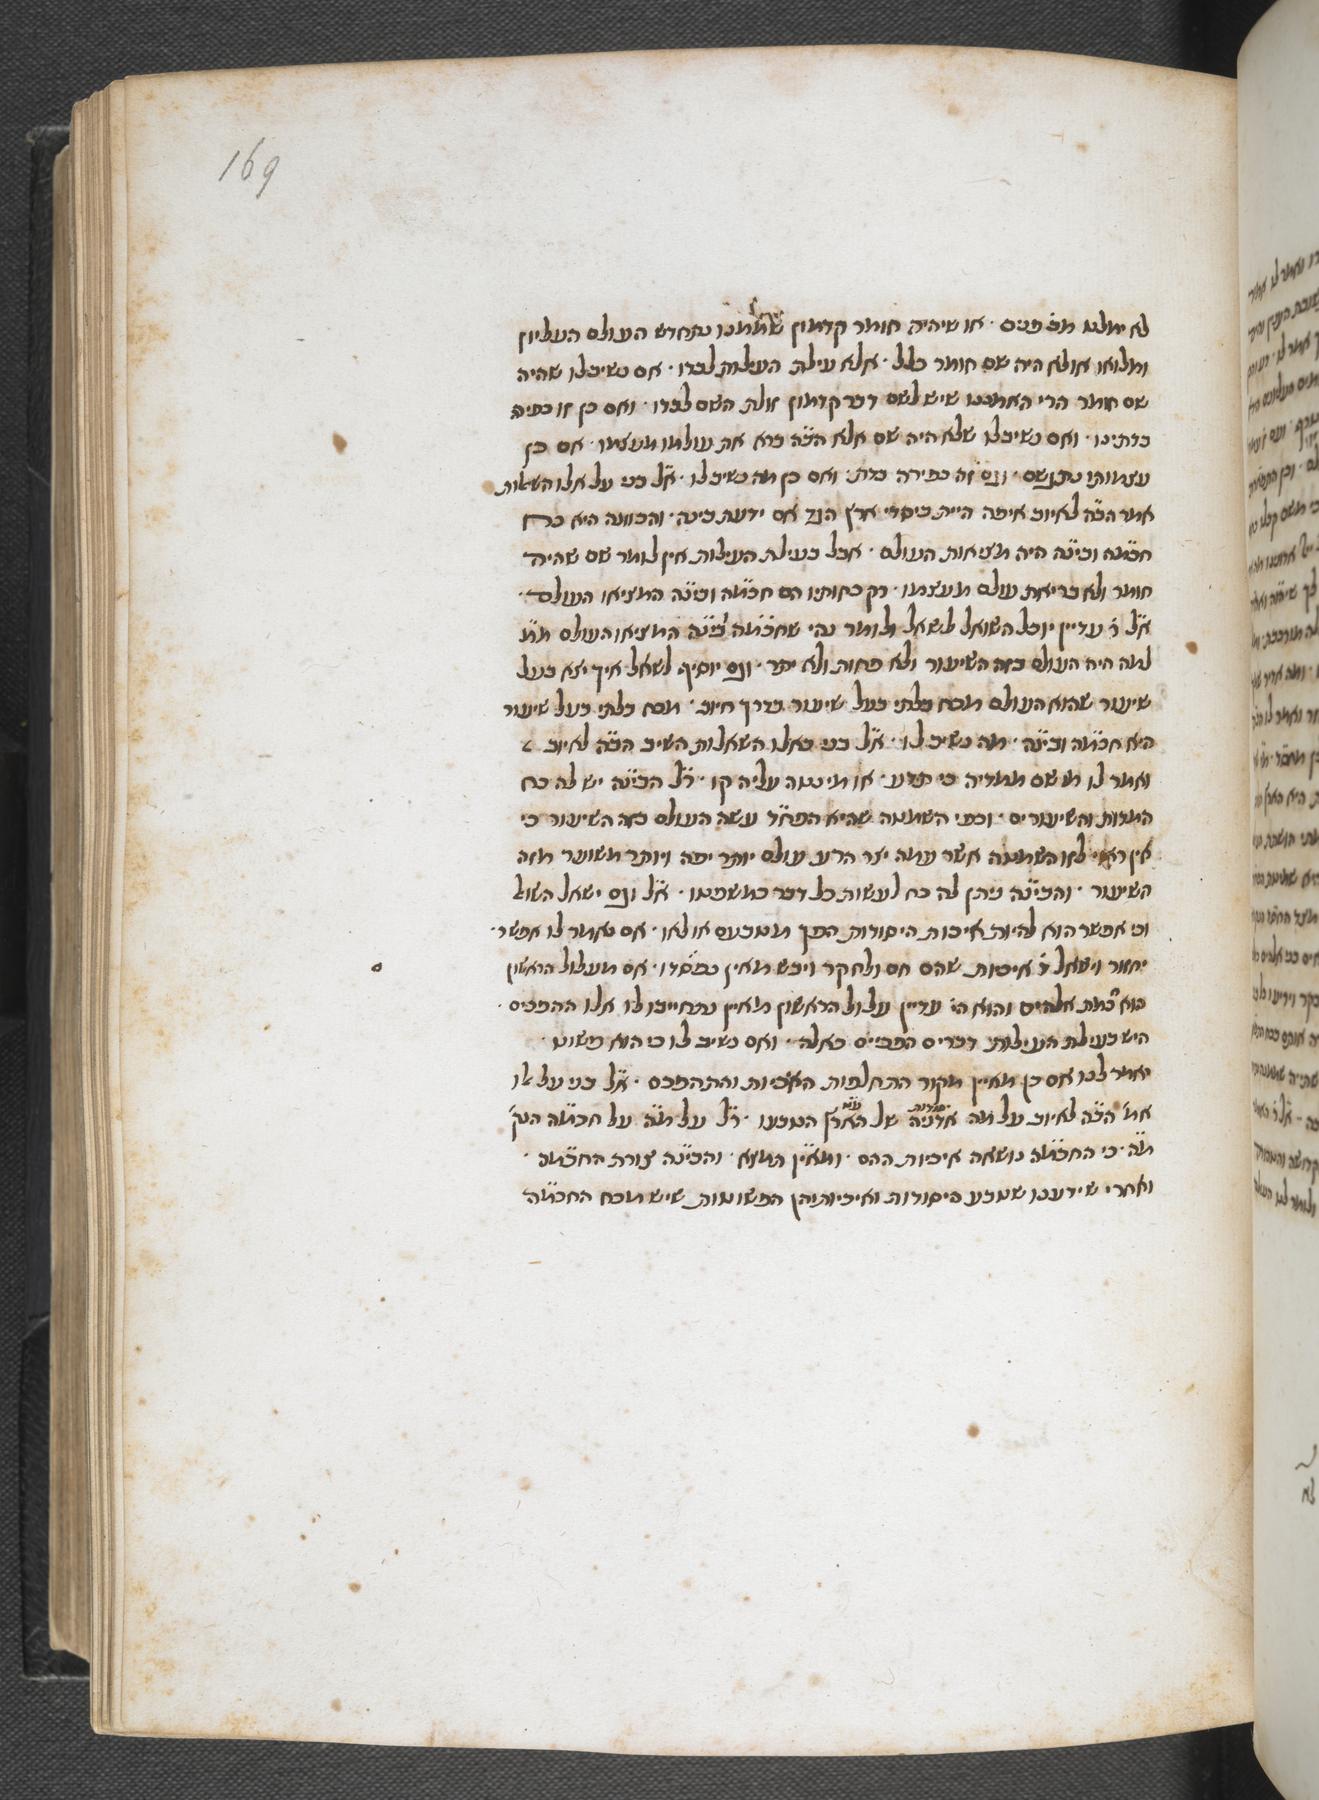 169
לא ימלט מב׳ פנים · או שיהיה חומר קדמון שממנו נתחדש העולם העליון
ומלואו או לא היה שם חומר כלל · אלא עילת העילות לבדו · אם נשיב לו שהיה
שם חומר הרי האמננו שיש לשם דבר קדמון זולת השם לבדו · ואם כן זו כפיה
בדתינו · ואם נשיב לו שלא היה שם אלא הב״ה ברא את עולמו מעצמו · אם כן
עצמותו נתגשם · וגם זה כפירה בדת · ואם כן מה נשיב לו · א״ל בני על אלו השאלות
אמר הב״ה לאיוב איפה היית ביסדי ארץ הגד אם ידעת בינה · והכוונה היא כח
חכמ״ה ובינ״ה היה מציאות העולם · אבל בעילת העילות אין לומר שם שהיה
חומר ולא בריאת עולם מעצמו · רק כחותיו הם חכמ״ה ובינ״ה המציאו העולם ·
א״ל ר׳ עדיין יוכל השואל לשאל ולומר נהי שחכמ״ה ובינ״ה המציאו העולם מ״מ
למה היה העולם בזה השיעור ולא פחות ולא יתר · וגם יוסיף לשאל איך יצא בעל
שיעור שהוא העולם מכח בלתי בעל שיעור בדרך חיוב · מכח בלתי בעל שיעור
היא חכמ״ה ובינ״ה · מה נשיב לו · א״ל בני באלו השאלות השיב הב״ה לאיוב
ואמר לו מי שם ממדיה כי תדע · או מי נטה עליה קו · ר״ל הבינ״ה יש לה כח
המדות והשיעורים · וכפי השמטה שהיא הפח״ד עשה העולם בזה השיעור כי
אין ראוי לזו השמטה אשר עמה יצר הרע עולם יותר יפה ויותר משוער מזה
השיעור · והבינ״ה ניתן לה כח לעשות כל דבר כמשפטו · א״ל וגם ישאל השואל
וכי אפשר הוא להיות איכות היסודות הפך מטבעם או לאו · אם נאמר לו אפשר ·
יחזור וישאל ד׳ איכות שהם חם ולח קר ויבש מאין נפרדו · אם מעלול הראשון
הוא חכמת אלהים והוא הי׳ עדיין עלול הראשון מאין נתחייבו לו אלו ההפכים ·
היש בעילת העילות דברים הפכיים כאלה · ואם נשיב לו כי הוא פשוט ·
יאמר לנו אם כן מאיין מקור התחלפות האיכיות והתהפכם · א״ל בני על זו
אמ׳ הב״ה לאיוב על מה אדניה של הארץ הטבעו · ר״ל על מ״ה על חכמ״ה הנק׳
מ״ה · כי החכמ״ה נושאה איכיות ההם · ומאי״ן תמצא · והבינ״ה צורת החכמ״ה ·
ואחרי שידענו שטבע היסודות ואיכיותיהן הפשוטות שיש מכח החכמ״ה